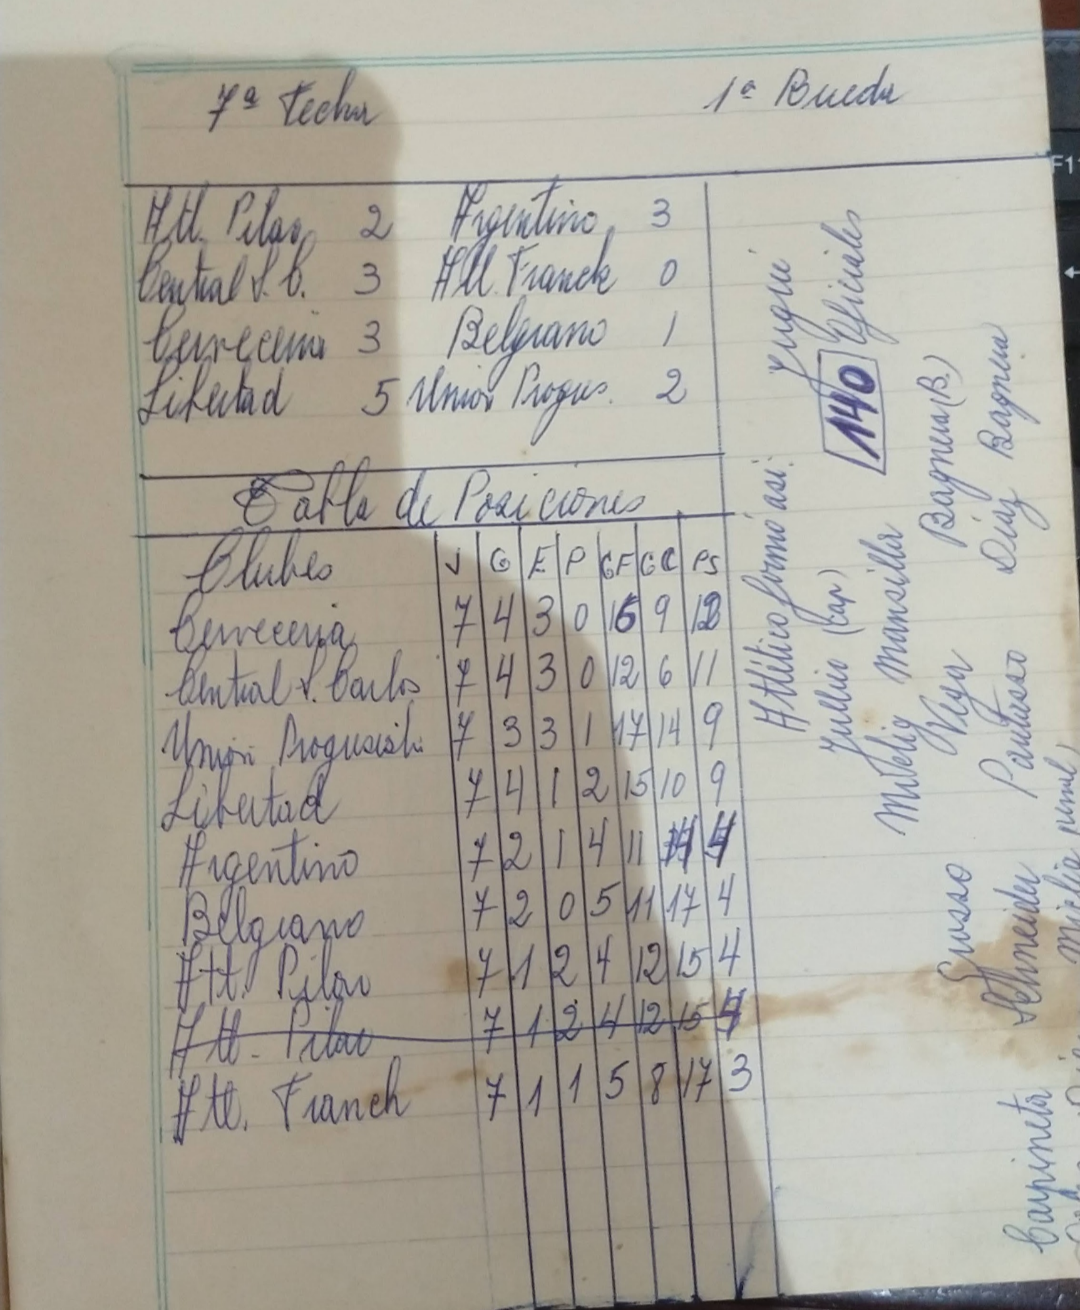 7ª Fecha 1ª Rueda
Atl. Pilar 2 Argentino 3
Central S.C. 3 Atl. Franck 0
Cerveceria 3 Belgrano 1
Libertad 5 Union Progres. 2
Tabla de Posiciones
Clubes J G E P GF GC PS
Cerveceria 7 4 3 0 16 9
Central S. Carlos 7 4 3 0 12 6 11
Union Progresista 7 3 3 1 17 14 9
Libertad 7 4 1 2 15 10 9
Argentino 7 2 1 4 11
Belgrano 7 2 0 5 11 17 4
Atl. Pilar 7 1 2 4 12 15 4
Atl. Pilar 7 1 2 4 12 15 4
Atl. Franck 7 1 1 5 8 17 3
Atlético formó asi:
(cap)
140 Oficiales
Mansilla
Vega Bagnera (B.)
Díaz Bagnera
Schneider
Carpineta
F11